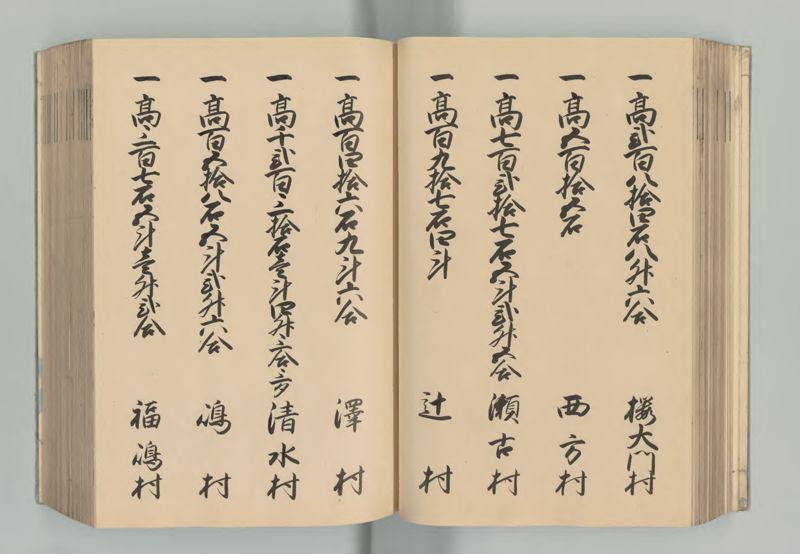 一高弐百八拾四石八升六合 櫻大門村
一高五百拾五石 西方村
一高七百弐拾七石五斗弐升五合 瀬古村
一高百九拾七石四斗 辻村
一高百四拾六石九斗六合 澤村
一高千弐百三拾石壱斗四升三合三夕 清水村
一高百五拾八石五斗弐升六合 嶋村
一高三百七石五斗壱升弐合 福嶋村